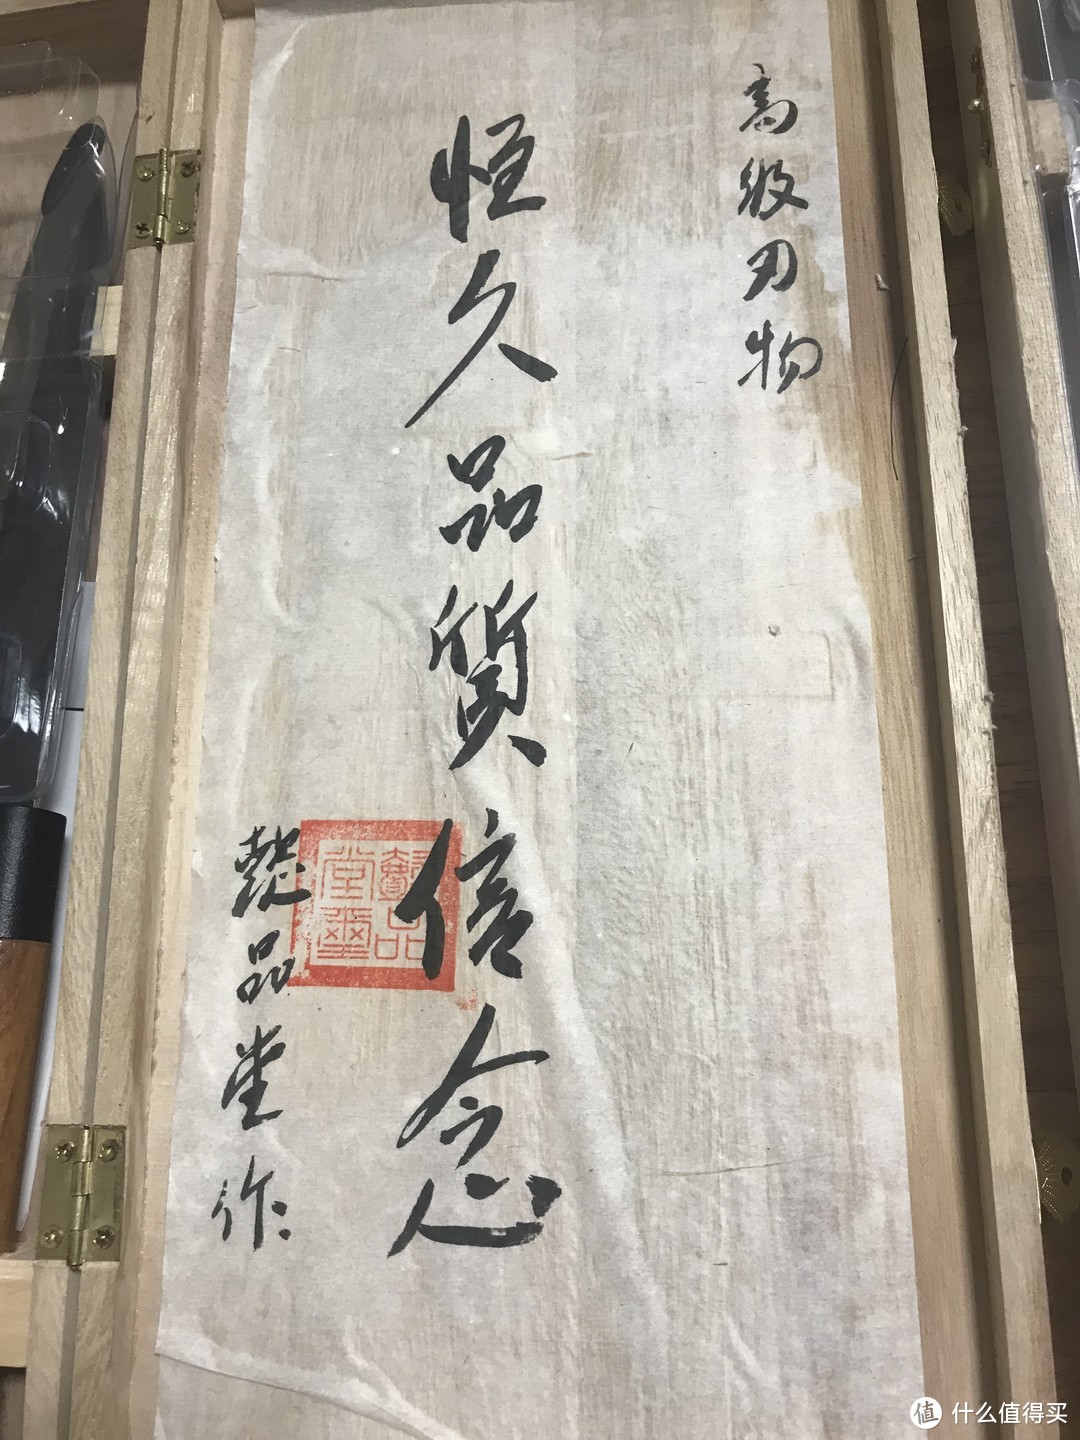 高级刃物
恒久品質信念
懿品堂作
懿品堂璽
值 什么值得买